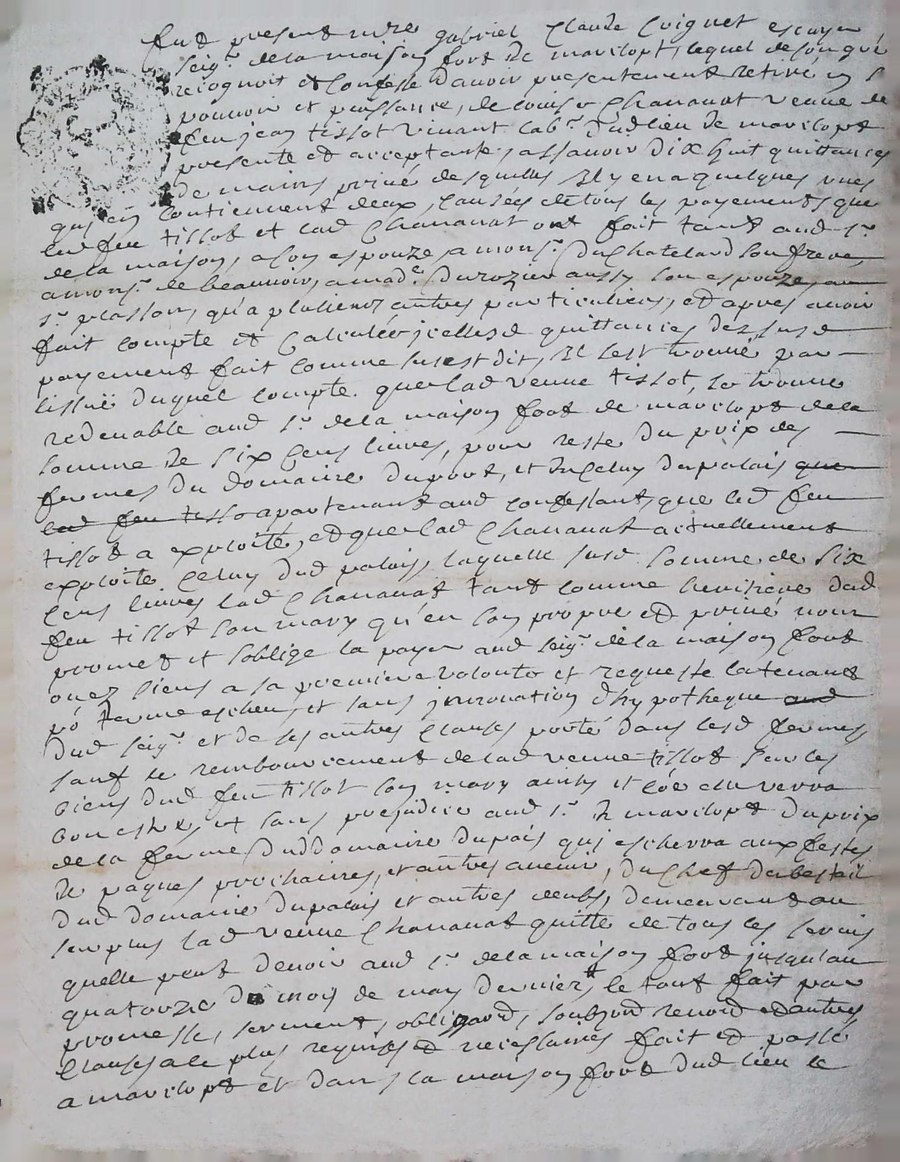 fut present mre gabriel Claude Coignet escuyer
seigr de la maison fort de marclopt, lequel de son gré
recognoit et confesse d'avoir presentement retiré en s
pouvoir et puissance, de Chavanat veuve de
feu jean tissot vivant labr dud lieu de marclopt
presente et acceptante, assavoir dix huit quittances
de mains privé desquelles Il y en a quelques unes
qui en contiennent deux, causés de tous les payements que
led feu tissot et lad Chavanat ont fait tant aud sr
de la maison, a son espouze, a monsr duchateland son frere,
a monsr de beauvoir, a made durozier aussy son espouze, au
sr plasson, qu'a plusieurs autres particuliers, et apres avoir
fait compte et calculé jcelles quittances des susd
payements fait comme sus est dit, Il s'est trouvé par
lissuë duquel compte que lad veuve tissot, se trouve
redevable aud sr de la maison fort de marclopt de la
somme de six cens livres, pour reste du prix des
fermes du domaine duport, et de celuy dupalais que
lad feu tisso apartenant aud confessant, que led feu
tissot a exploité, et que lad Chavanat actuellement
exploite celuy dud palais, laquelle susd somme de six
cens livres lad Chavanat tant comme heritiere dud
feu tissot son mary qu'en son propre et privé nom
promet et soblige la payer aud seigr de la maison fort
ou ez siens a sa premiere volonté et requeste la tenant
po terme escheu, et sans jnnovation d'hypotheque aud
dud seigr et de ses autres clauses porté dans lesd fermes
sauf le remboursement de lad veuve tissot sur les
biens dud feu tissot son mary ainsy et où elle verra
bon estre, et sans prejudice aud sr de marclopt du prix
de la ferme dud domaine dupais qui escherra aux festes
de paques prochaines, et autres avenir, du chef du bestail
dud domaine dupalais et autres deubs, demeurant au
surplus lad veuve Chavanat quitte de tous les servis
quelle peut devoir aud sr de la maison fort jusqu'au
quatorzie du mois de may dernier, le tout fait par
promesse, serment, obligaond, soubzond renond et autres
clauses a ce plus requises et necessaires fait et passé
a marclopt et dans la maison fort dud lieu le